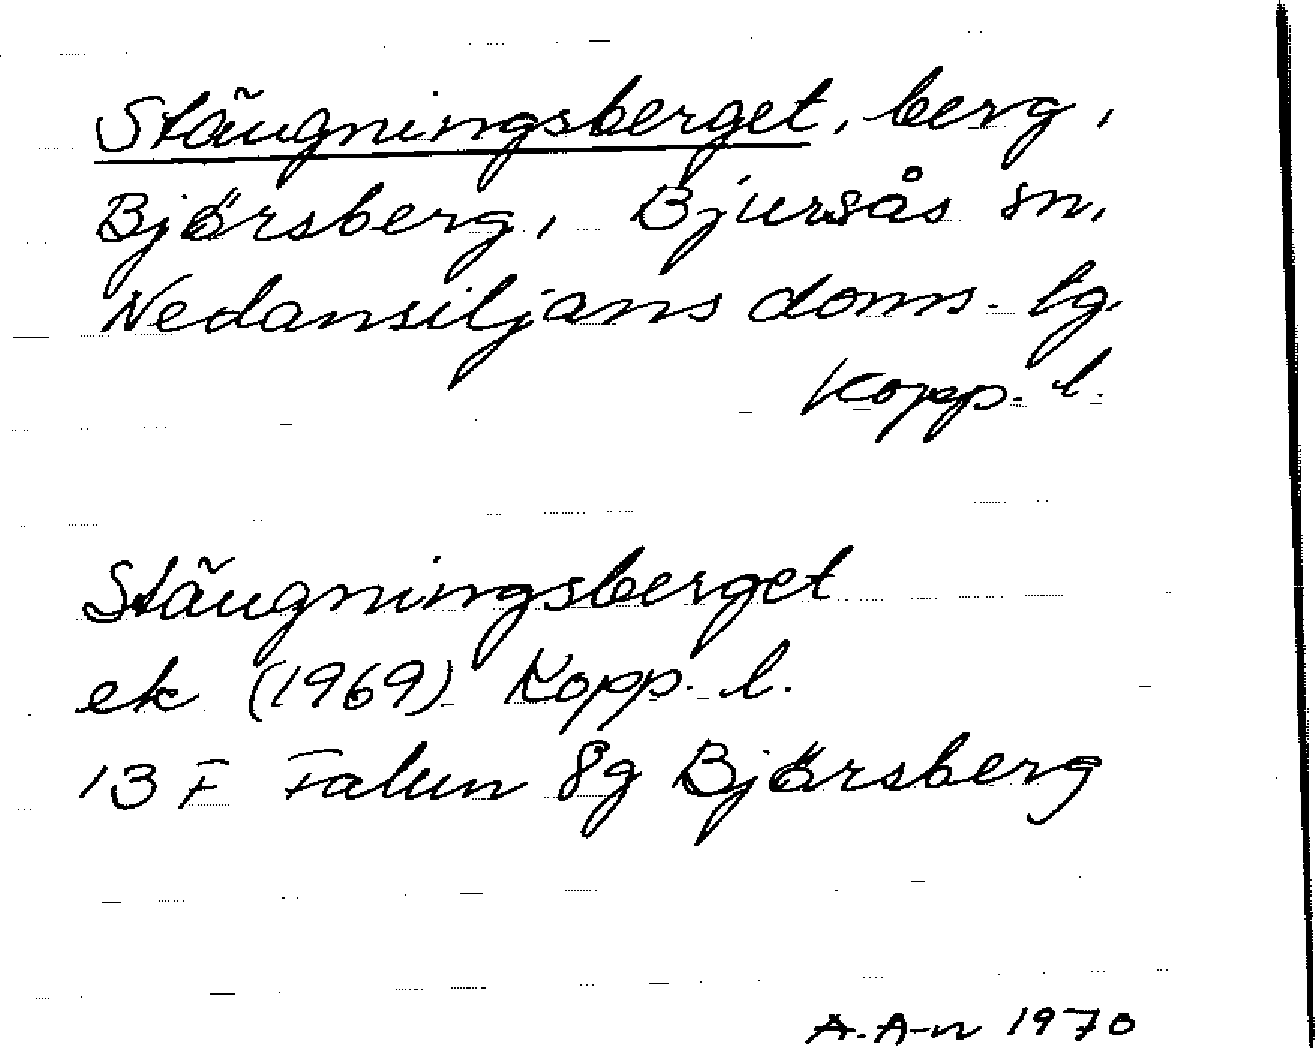 Stängningsberget, berg,
Björsberg, Bjursås sn,
Nedansiljans doms. tg.
Kopp. l.
Stängningsberget
ek (1969) Kopp. l.
13 F Falun 8g Björsberg
A.A-n 1970